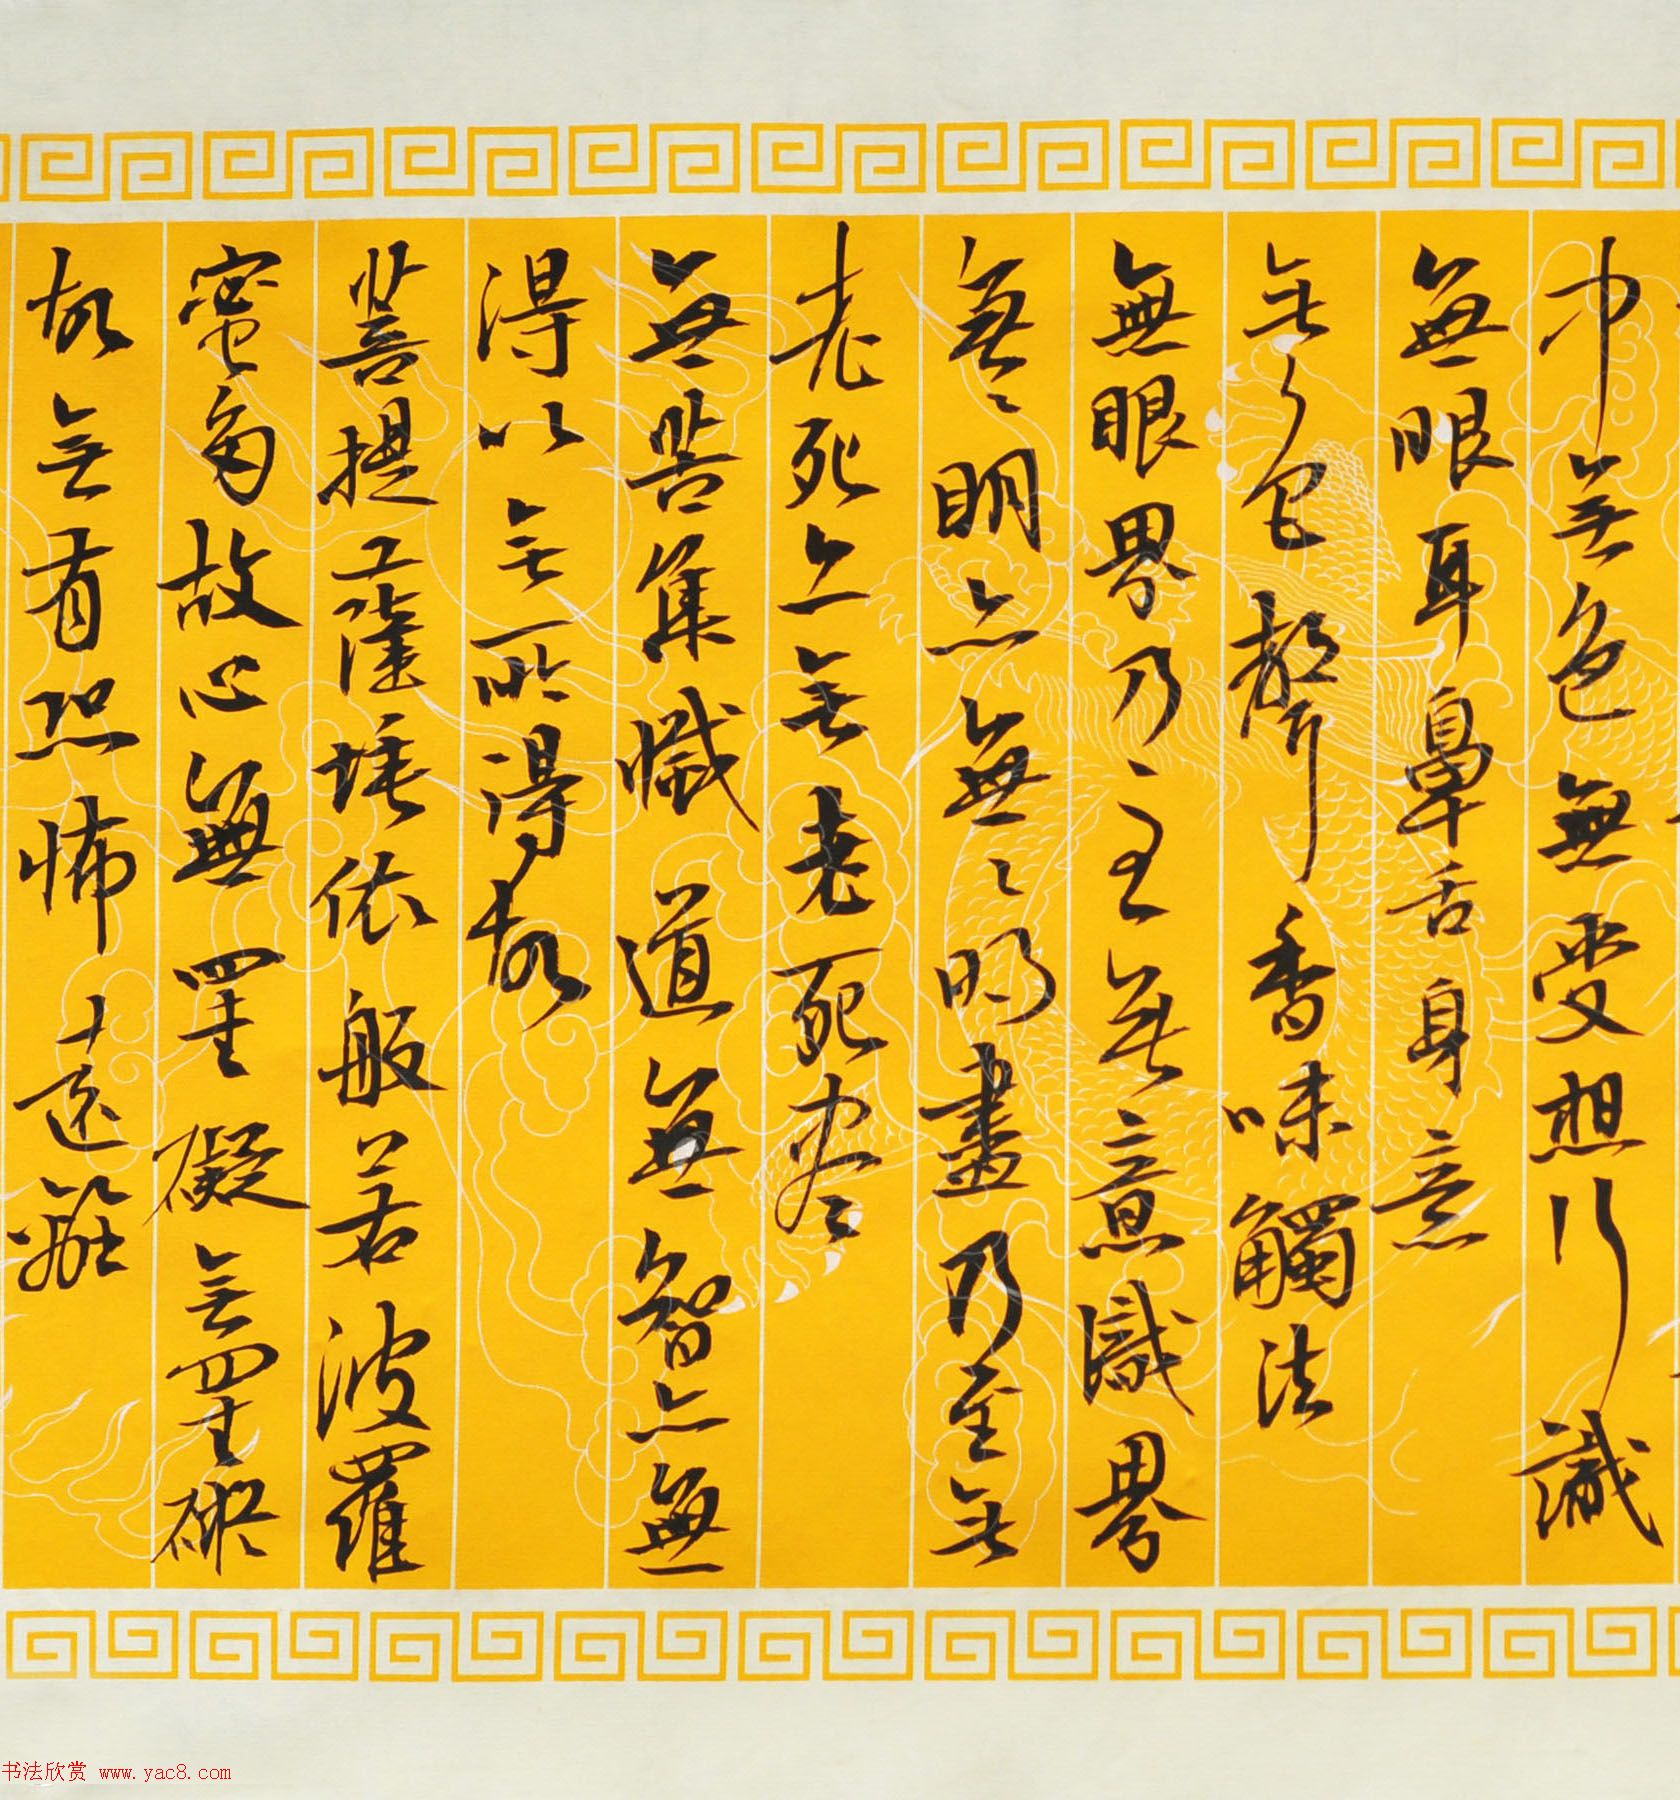 中無色無受想行識
無眼耳鼻舌身意
無色聲香味觸法
無眼界乃至無意識界
無〻明亦無〻明盡乃至無
老死亦無老死尽
無苦集滅道無智亦無
得以無所得故
菩提薩埵依般若波羅
蜜多故心無罣礙無罣礙
故無有恐怖遠離
书法欣赏 www.yac8.com